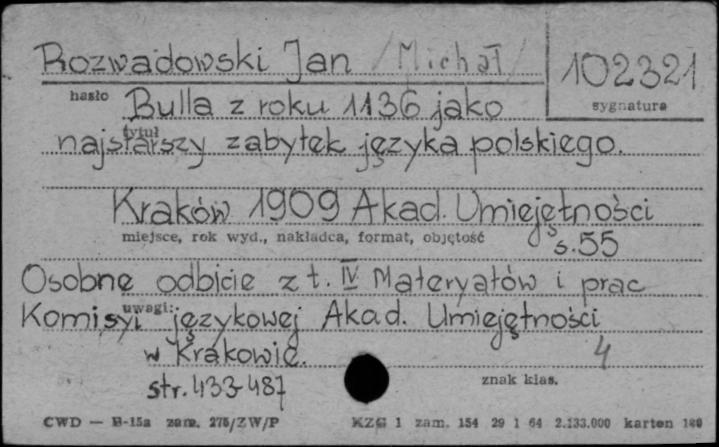 Rozwadowski Jan /Michał/
102321
hasło
sygnatura
Bulla z roku 1136 jako
tytuł
najstarszy zabytek języka polskiego.
Kraków 1909 Akad. Umiejętności
miejsce, rok wyd., nakładca, format, objętość
s. 55
Osobne odbicie z t. IV Materyałów i prac
uwagi:
Komisyi językowej Akad. Umiejętności
w Krakowie.
4
str. 433-487
znak klas.
CWD — B-15a zam. 275/ZW/P
KZG 1 zam. 154 29 1 64 2.133.000 karton